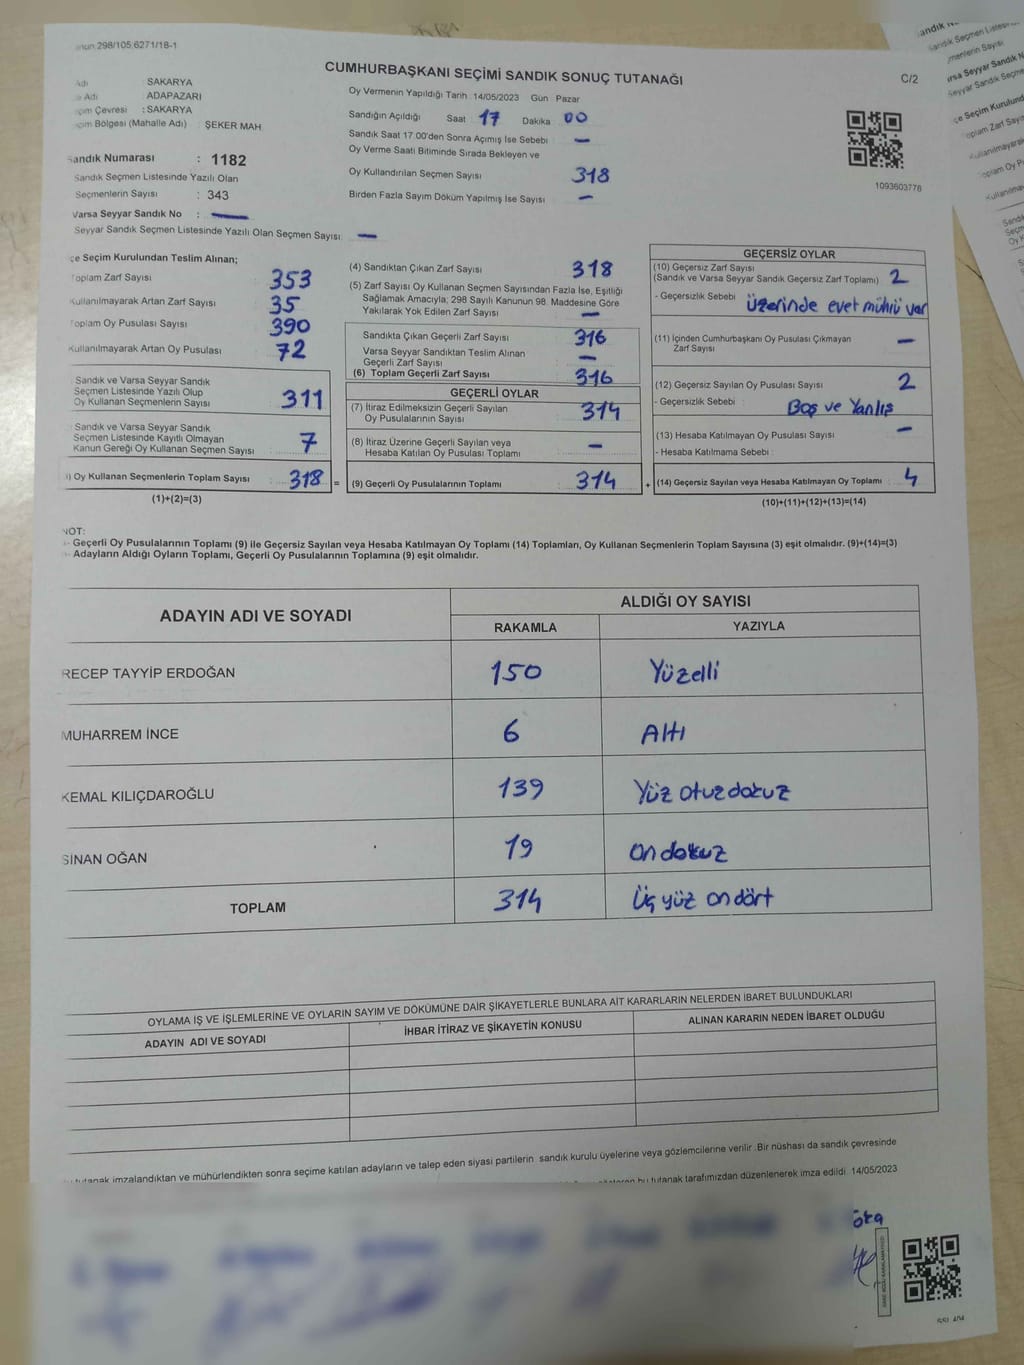 298/105.6271/18-1
CUMHURBAŞKANI SEÇİMİ SANDIK SONUÇ TUTANAĞI
C/2
Adı SAKARYA
Adı ADAPAZARI
Çevresi : SAKARYA
Bölgesi (Mahalle Adı) : ŞEKER MAH
Sandık Numarası : 1182
Sandık Seçmen Listesinde Yazılı Olan
Seçmenlerin Sayısı : 343
Varsa Seyyar Sandık No : —
Seyyar Sandık Seçmen Listesinde Yazılı Olan Seçmen Sayısı: —
Oy Vermenin Yapıldığı Tarih 14/05/2023 Gün : Pazar
Sandığın Açıldığı Saat : 17 Dakika : 00
Sandık Saat 17.00'den Sonra Açımış İse Sebebi —
Oy Verme Saati Bitiminde Sırada Bekleyen ve
Oy Kullandırılan Seçmen Sayısı 318
Birden Fazla Sayım Döküm Yapılmış İse Sayısı —
1093603778
Seçim Kurulundan Teslim Alınan;
Toplam Zarf Sayısı 353
Kullanılmayarak Artan Zarf Sayısı 35
Toplam Oy Pusulası Sayısı 390
Kullanılmayarak Artan Oy Pusulası 72
Sandık ve Varsa Seyyar Sandık
Seçmen Listesinde Yazılı Olup
Oy Kullanan Seçmenlerin Sayısı 311
Sandık ve Varsa Seyyar Sandık
Seçmen Listesinde Kayıtlı Olmayan
Kanun Gereği Oy Kullanan Seçmen Sayısı 7
Oy Kullanan Seçmenlerin Toplam Sayısı : 318 =
(1)+(2)=(3)
(4) Sandıktan Çıkan Zarf Sayısı 318
(5) Zarf Sayısı Oy Kullanan Seçmen Sayısından Fazla İse, Eşitliği
Sağlamak Amacıyla; 298 Sayılı Kanunun 98. Maddesine Göre
Yakılarak Yok Edilen Zarf Sayısı —
Sandıkta Çıkan Geçerli Zarf Sayısı 316
Varsa Seyyar Sandıktan Teslim Alınan
Geçerli Zarf Sayısı —
(6) Toplam Geçerli Zarf Sayısı 316
GEÇERLİ OYLAR
(7) İtiraz Edilmeksizin Geçerli Sayılan
Oy Pusulalarının Sayısı 314
(8) İtiraz Üzerine Geçerli Sayılan veya
Hesaba Katılan Oy Pusulası Toplamı —
(9) Geçerli Oy Pusulalarının Toplamı 314 +
GEÇERSİZ OYLAR
(10) Geçersiz Zarf Sayısı
(Sandık ve Varsa Seyyar Sandık Geçersiz Zarf Toplamı) 2
- Geçersizlik Sebebi : üzerinde evet mührü var
(11) İçinden Cumhurbaşkanı Oy Pusulası Çıkmayan
Zarf Sayısı —
(12) Geçersiz Sayılan Oy Pusulası Sayısı 2
- Geçersizlik Sebebi : Boş ve Yanlış
(13) Hesaba Katılmayan Oy Pusulası Sayısı —
- Hesaba Katılmama Sebebi :
(14) Geçersiz Sayılan veya Hesaba Katılmayan Oy Toplamı : 4
(10)+(11)+(12)+(13)=(14)
NOT:
- Geçerli Oy Pusulalarının Toplamı (9) ile Geçersiz Sayılan veya Hesaba Katılmayan Oy Toplamı (14) Toplamları, Oy Kullanan Seçmenlerin Toplam Sayısına (3) eşit olmalıdır. (9)+(14)=(3)
- Adayların Aldığı Oyların Toplamı, Geçerli Oy Pusulalarının Toplamına (9) eşit olmalıdır.
ADAYIN ADI VE SOYADI ALDIĞI OY SAYISI
RAKAMLA YAZIYLA
RECEP TAYYİP ERDOĞAN 150 Yüzelli
MUHARREM İNCE 6 Altı
KEMAL KILIÇDAROĞLU 139 Yüz otuzdokuz
SİNAN OĞAN 19 on dokuz
TOPLAM 314 Üç yüz on dört
OYLAMA İŞ VE İŞLEMLERİNE VE OYLARIN SAYIM VE DÖKÜMÜNE DAİR ŞİKAYETLERLE BUNLARA AİT KARARLARIN NELERDEN İBARET BULUNDUKLARI
ADAYIN ADI VE SOYADI İHBAR İTİRAZ VE ŞİKAYETİN KONUSU ALINAN KARARIN NEDEN İBARET OLDUĞU
tutanak imzalandıktan ve mühürlendikten sonra seçime katılan adayların ve talep eden siyasi partilerin sandık kurulu üyelerine veya gözlemcilerine verilir. Bir nüshası da sandık çevresinde
bu tutanak tarafımızdan düzenlenerek imza edildi. 14/05/2023